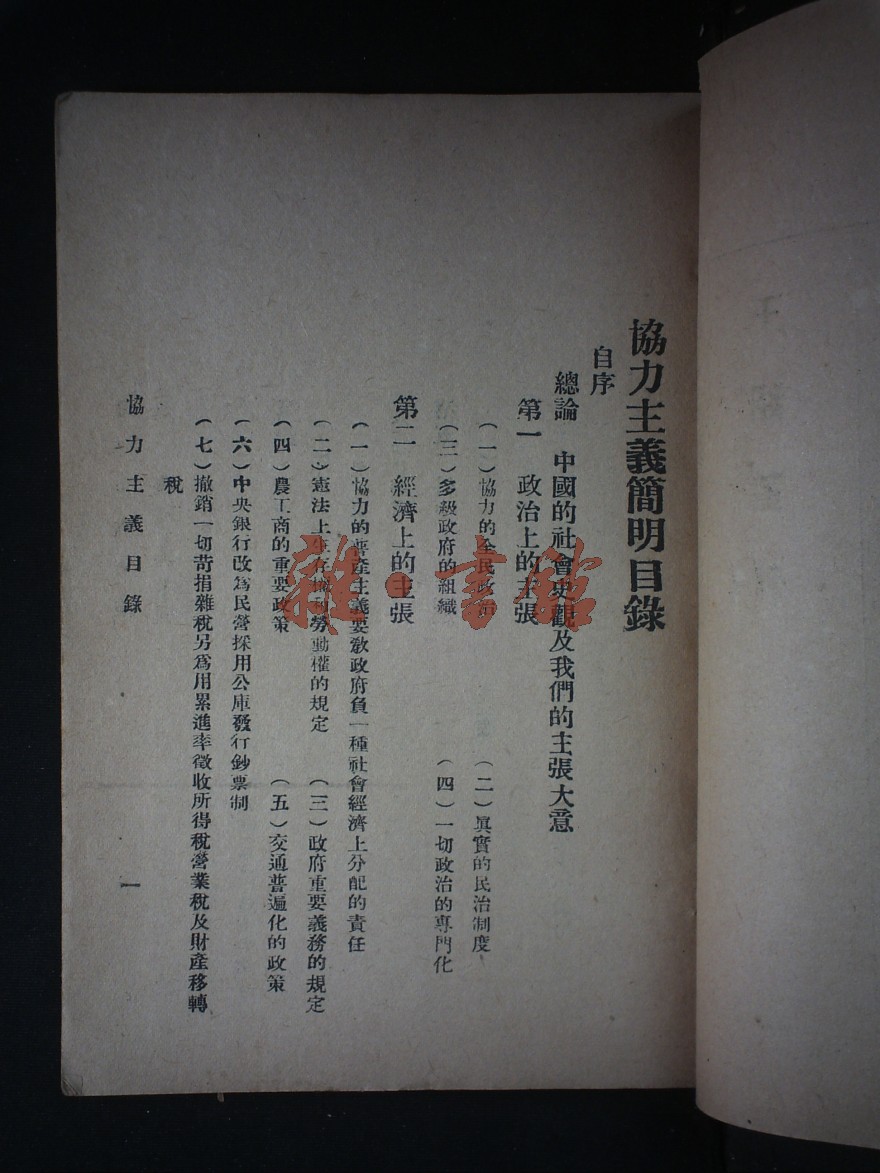 協力主義簡明目錄
自序
總論 中國的社會史觀及我們的主張大意
第一 政治上的主張
(一)協力的全民政治 (二)眞實的民治制度
(三)多級政府的組織 (四)一切政治的專門化
第二 經濟上的主張
(一)協力的普產主義要教政府負一種社會經濟上分配的責任
(二)憲法上生存權和勞動權的規定 (三)政府重要義務的規定
(四)農工商的重要政策 (五)交通普遍化的政策
(六)中央銀行改爲民營採用公庫發行鈔票制
(七)撤銷一切苛捐雜稅另爲用累進率徵收所得稅營業稅及財產移轉
稅
協力主義目錄 一
雜·書館